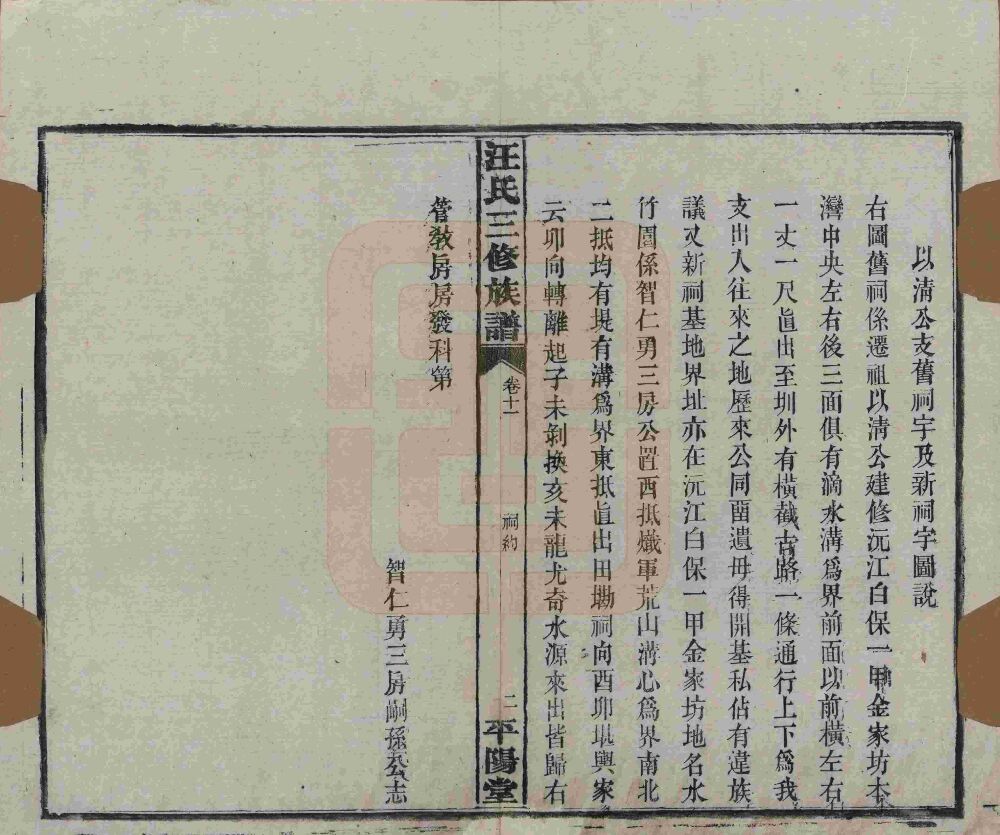 以清公支舊祠宇及新祠宇圖說
右圖舊祠係遷祖以清公建修沅江白保一甲金家坊本
灣中央左右後三面俱有滴水溝爲界前面以前橫左右
一丈一尺直出至圳外有橫截古路一條通行上下爲我
支出入往來之地歷來公同畱遺毋得開基私佔有違族
議又新祠基地界址亦在沅江白保一甲金家坊地名水
竹園係智仁勇三房公置西抵熾軍荒山溝心爲界南北
二抵均有堤有溝爲界東抵直出田塅祠向酉卯堪輿家
云卯向轉離起子未剝換亥未龍尤奇水源來出皆歸右
管敎房房發科第
智仁勇三房嗣孫公志
汪氏三修族譜
卷十一
祠約
二
平陽堂